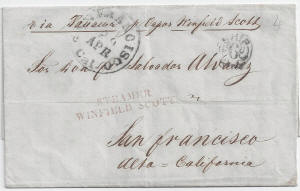 via Panama p. Vapor Winfield Scott
SAN FRANCISCO
APR
CAL.
SHIP
Salvador Alvarez
STEAMER
WINFIELD SCOTT
San francisco
Alta-California